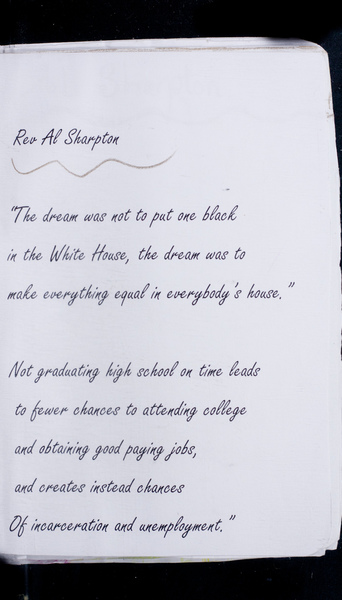 Rev Al Sharpton
"The dream was not to put one black
in the White House, the dream was to
make everything equal in everybody's house."
Not graduating high school on time leads
to fewer chances to attending college
and obtaining good paying jobs,
and creates instead chances
Of incarceration and unemployment."